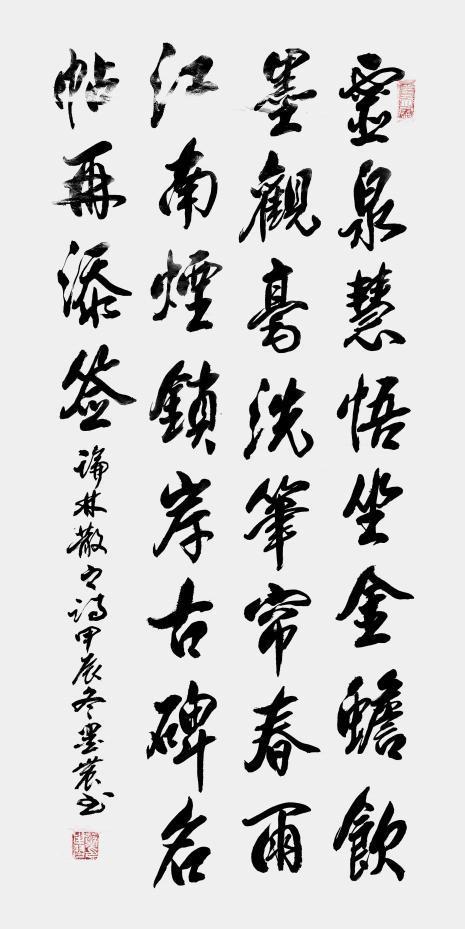 靈泉慧悟坐金蟾飲
墨觀毫洗筆帘春雨
江南煙鎖岸古碑名
帖再添签
論林散之詩甲辰冬墨農书